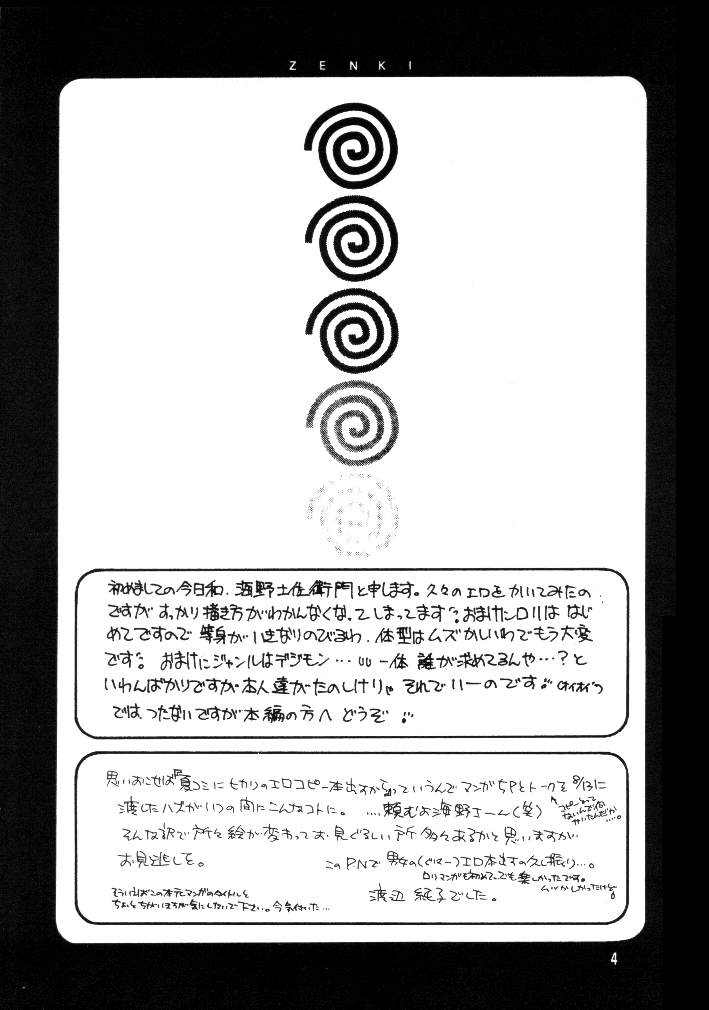 ZENKI
初めましての今日和、海野土佐衛門と申します。久々のエロをかいてみたの
ですがすっかり描き方がわかんなくなってしまってます。おまけにロリははじ
めてですので等身がいきなりのびるわ、体型はムズかしいわでもう大変
です。おまけにジャンルはデジモン…一体誰が求めてるんや…?と
いわんばかりですが本人達がたのしけりゃそれでいーのです
ではつたないですが本編の方へどうぞ
思いおこせば『夏コミにヒカリのエロコピー本出すから』っていうんでマンガ5Pとトークを8/13に
渡したハズがいつの間にこんなコトに。....頼むよ海野さーん(笑)
そんな訳で所々絵が変わってお見ぐるしい所多々あるかと思いますが
お見逃しを。
このPNで男女のエロ本出すの久し振り…。
ロリマンガも初めてでも楽しかったです。
ムツかしかったけど
そういえばこの本テニマンガのタイトルと
ちょっとちがいますが気にしないで下さい。今気付いた…
渡辺純子でした。
4